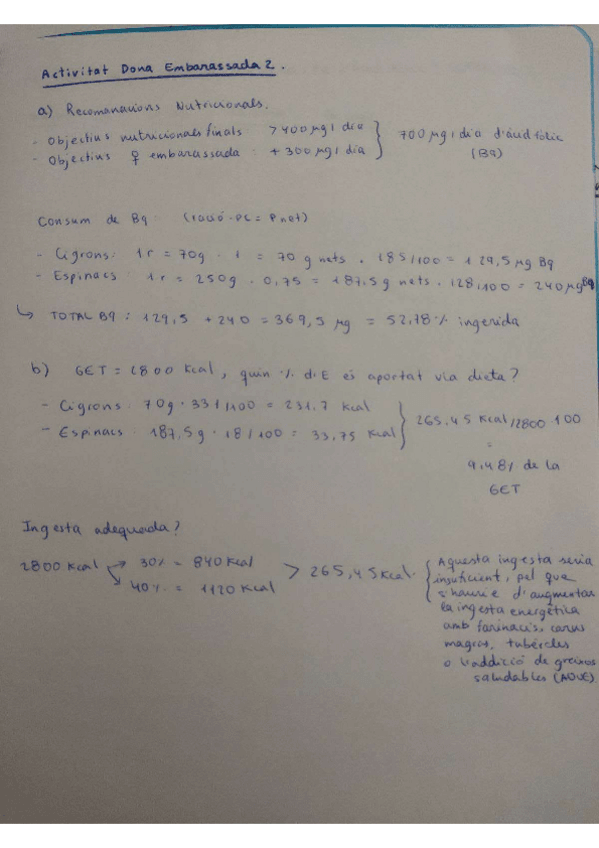 Activitat Dona Embarassada 2.
a) Recomanacions Nutricionals.
- Objectius nutricionals finals >400 µg/dia } 700 µg/dia d'àcid fòlic
- Objectius ♀ embarassada: +300 µg/dia (B9)
Consum de B9: (1ració · PC = P net)
- Cigrons: 1r = 70g · 1 = 70 g nets · 185/100 = 129,5 µg B9
- Espinacs: 1r = 250g · 0,75 = 187,5g nets · 128/100 = 240 µg B9
↳ TOTAL B9: 129,5 + 240 = 369,5 µg = 52,78% ingerida
b) GET = 2800 Kcal, quin % d'E és aportat via dieta?
- Cigrons: 70g · 331/100 = 231,7 Kcal } 265,45 Kcal/2800 · 100
- Espinacs: 187,5g · 18/100 = 33,75 Kcal =
9,48% de la
GET
Ingesta adequada?
2800 Kcal → 30% = 840 Kcal > 265,45 Kcal. { Aquesta ingesta seria
↘ 40% = 1120 Kcal insuficient, pel que
s'hauria d'augmentar
la ingesta energètica
amb farinacis, carns
magres, tubèrcles
o l'addició de greixos
saludables (AOVE)